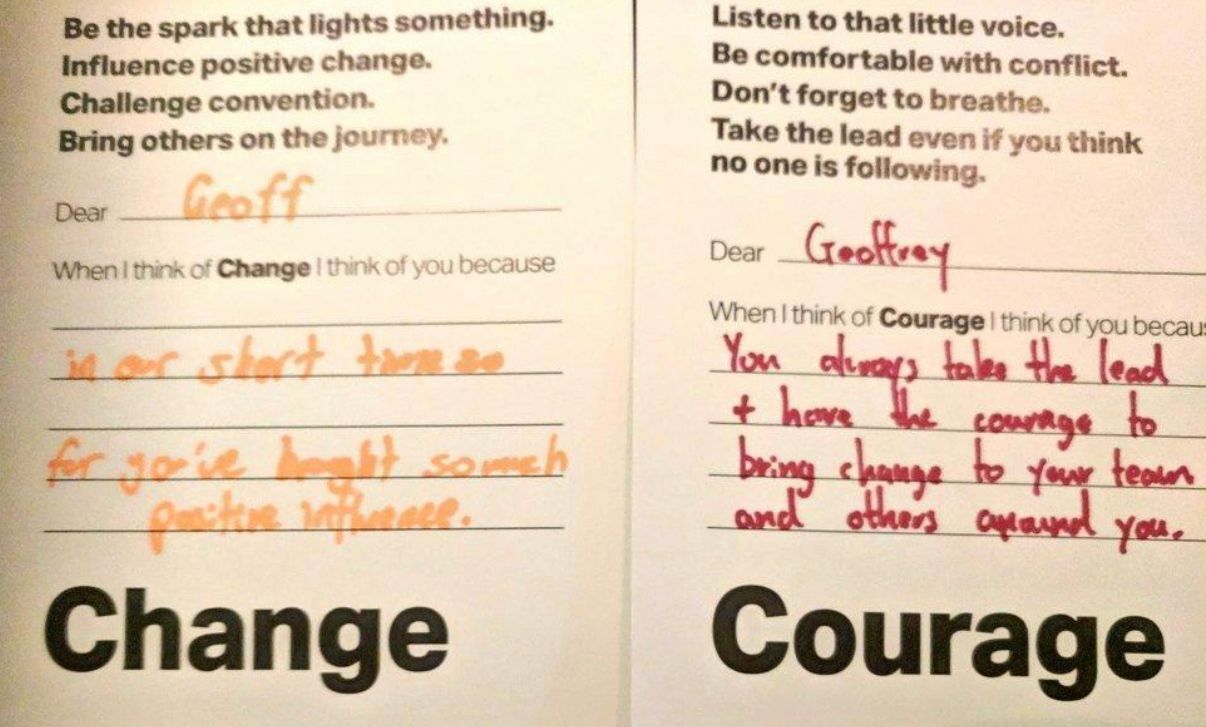 Be the spark that lights something.
Influence positive change.
Challenge convention.
Bring others on the journey.
Dear Geoff
When I think of Change I think of you because
in our short time so
for you've bought so much
positive influence.
Change
Listen to that little voice.
Be comfortable with conflict.
Don't forget to breathe.
Take the lead even if you think
no one is following.
Dear Geoffrey
When I think of Courage I think of you becau
You always take the lead
+ have the courage to
bring change to your team
and others around you.
Courage